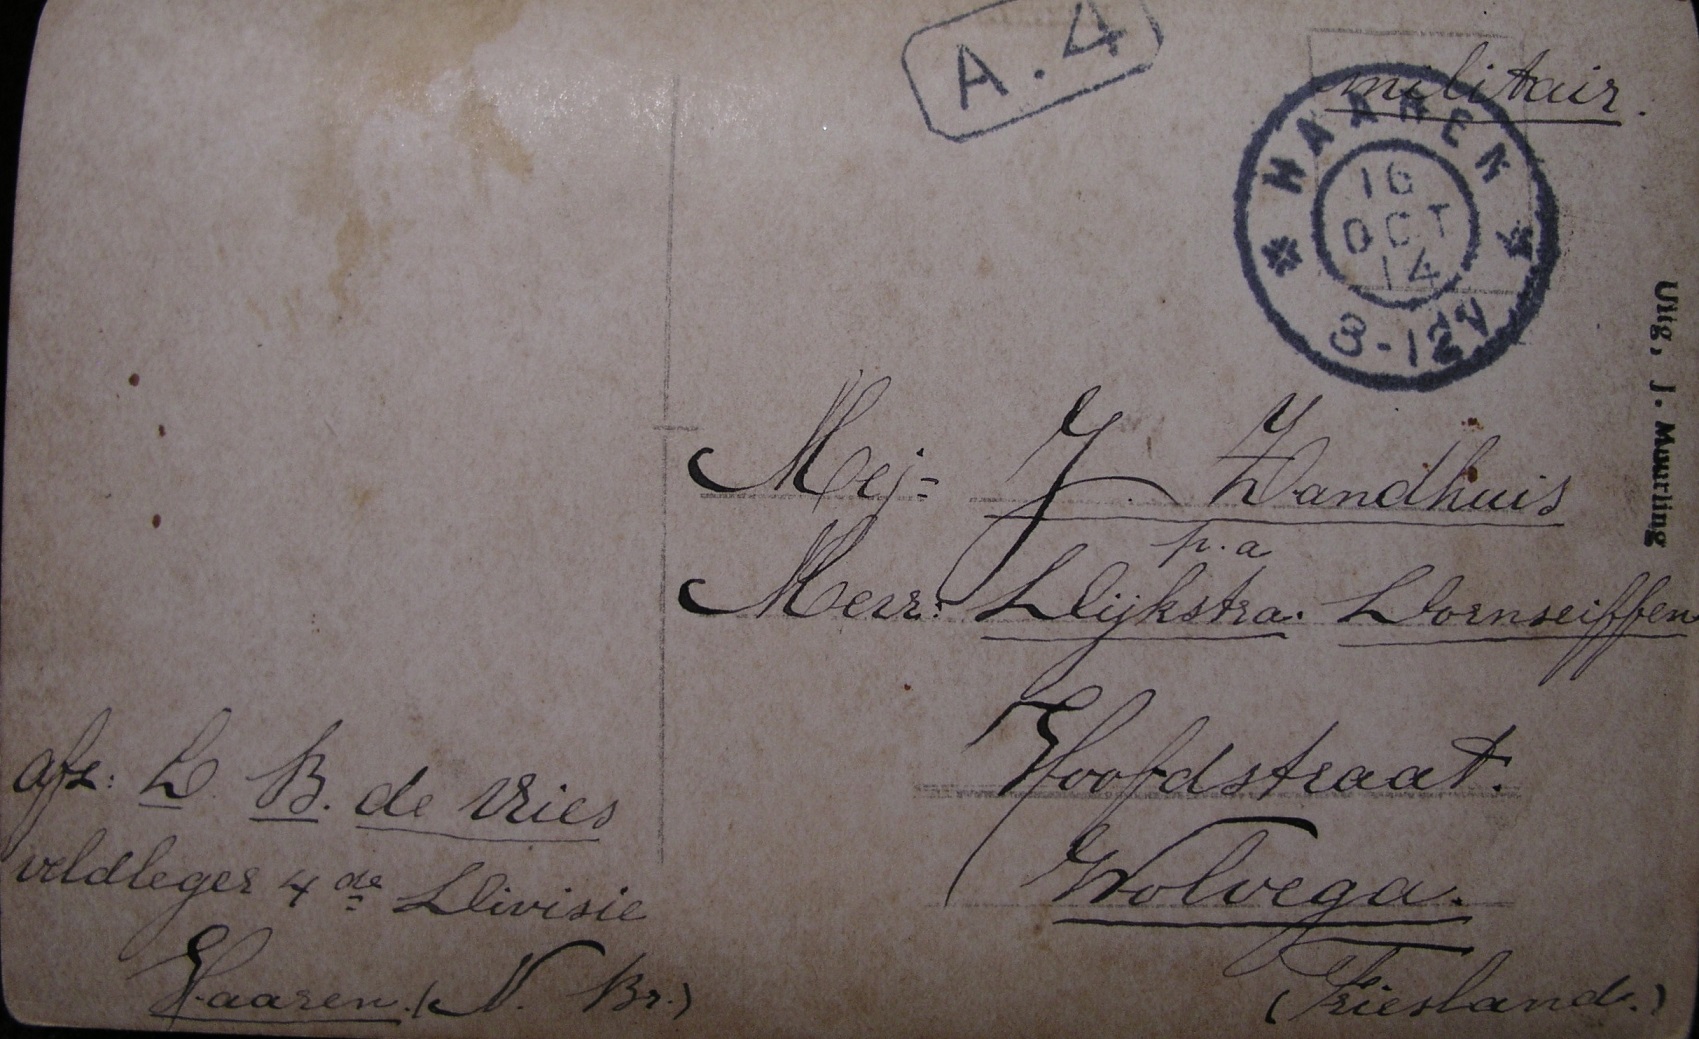 A.4
militair.
HAAREN
16
OCT
14
8-12V
Uitg, J. Mourling
Mej= J. Zandhuis
p.a
Mevr: Dijkstra. Dornseiffen
Hoofdstraat.
Wolvega.
(Friesland.)
afz: L. B. de Vries
veldleger 4de Divisie
Haaren. (N. Br.)